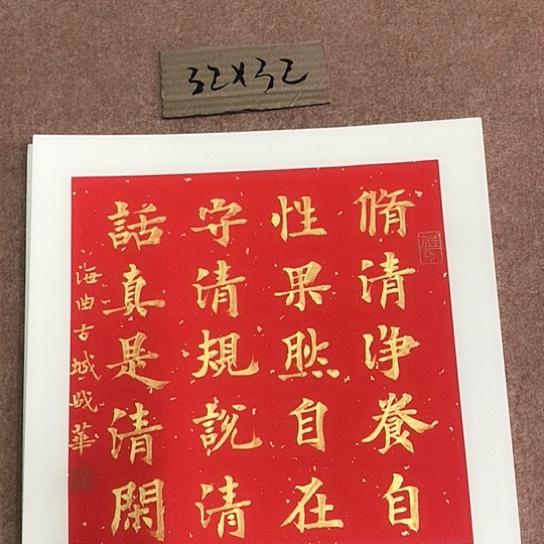 32×32
脩清净養自
性果肰自在
守清規説清
話真是清閑
海曲古城晓華